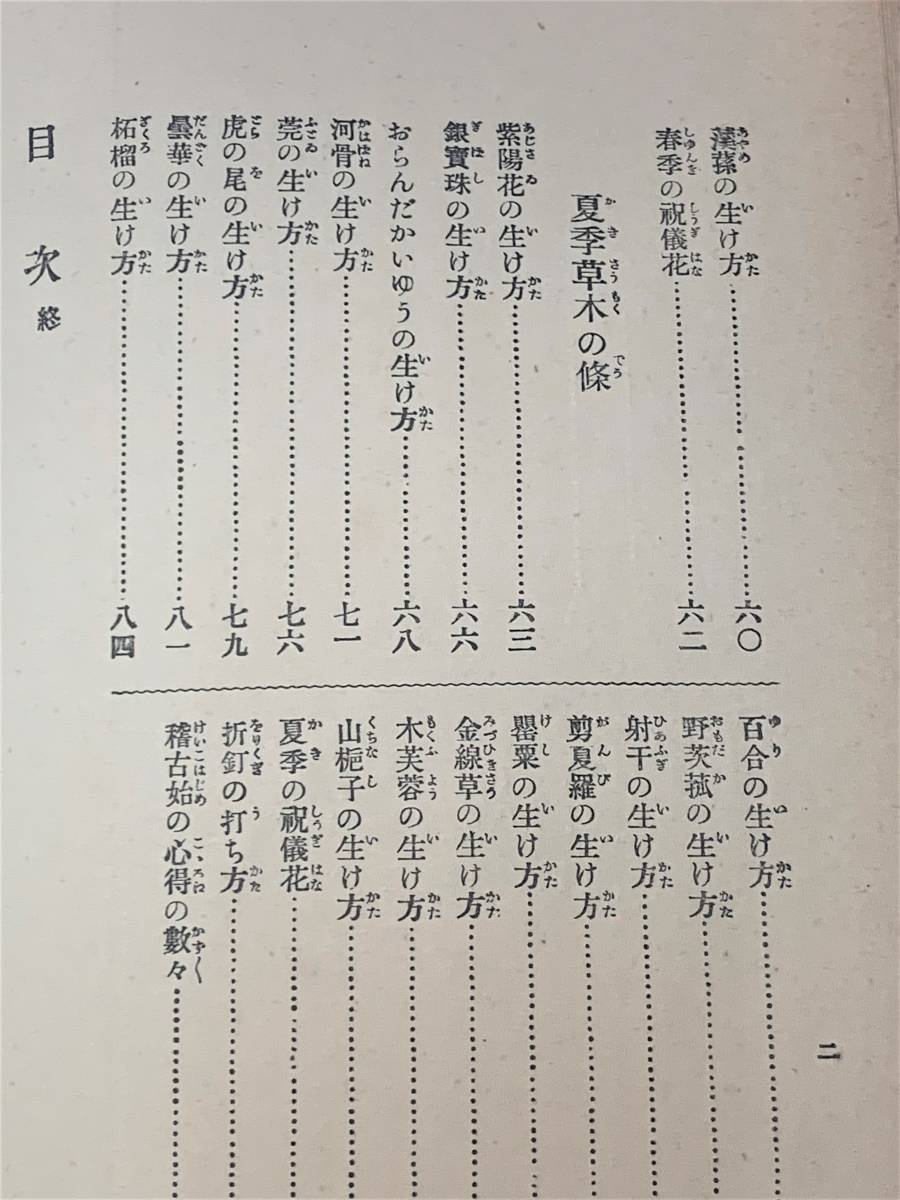 渓蓀の生け方……六〇
春季の祝儀花……六二
夏季草木の條
紫陽花の生け方……六三
銀寶珠の生け方……六六
おらんだかいゆうの生け方……六八
河骨の生け方……七一
莞の生け方……七六
虎の尾の生け方……七九
曇華の生け方……八一
柘榴の生け方……八四
百合の生け方……
野茨菰の生け方……
射干の生け方……
剪夏羅の生け方……
罌粟の生け方……
金線草の生け方……
木芙蓉の生け方……
山梔子の生け方……
夏季の祝儀花……
折釘の打ち方……
稽古始の心得の數々……
目次終
二